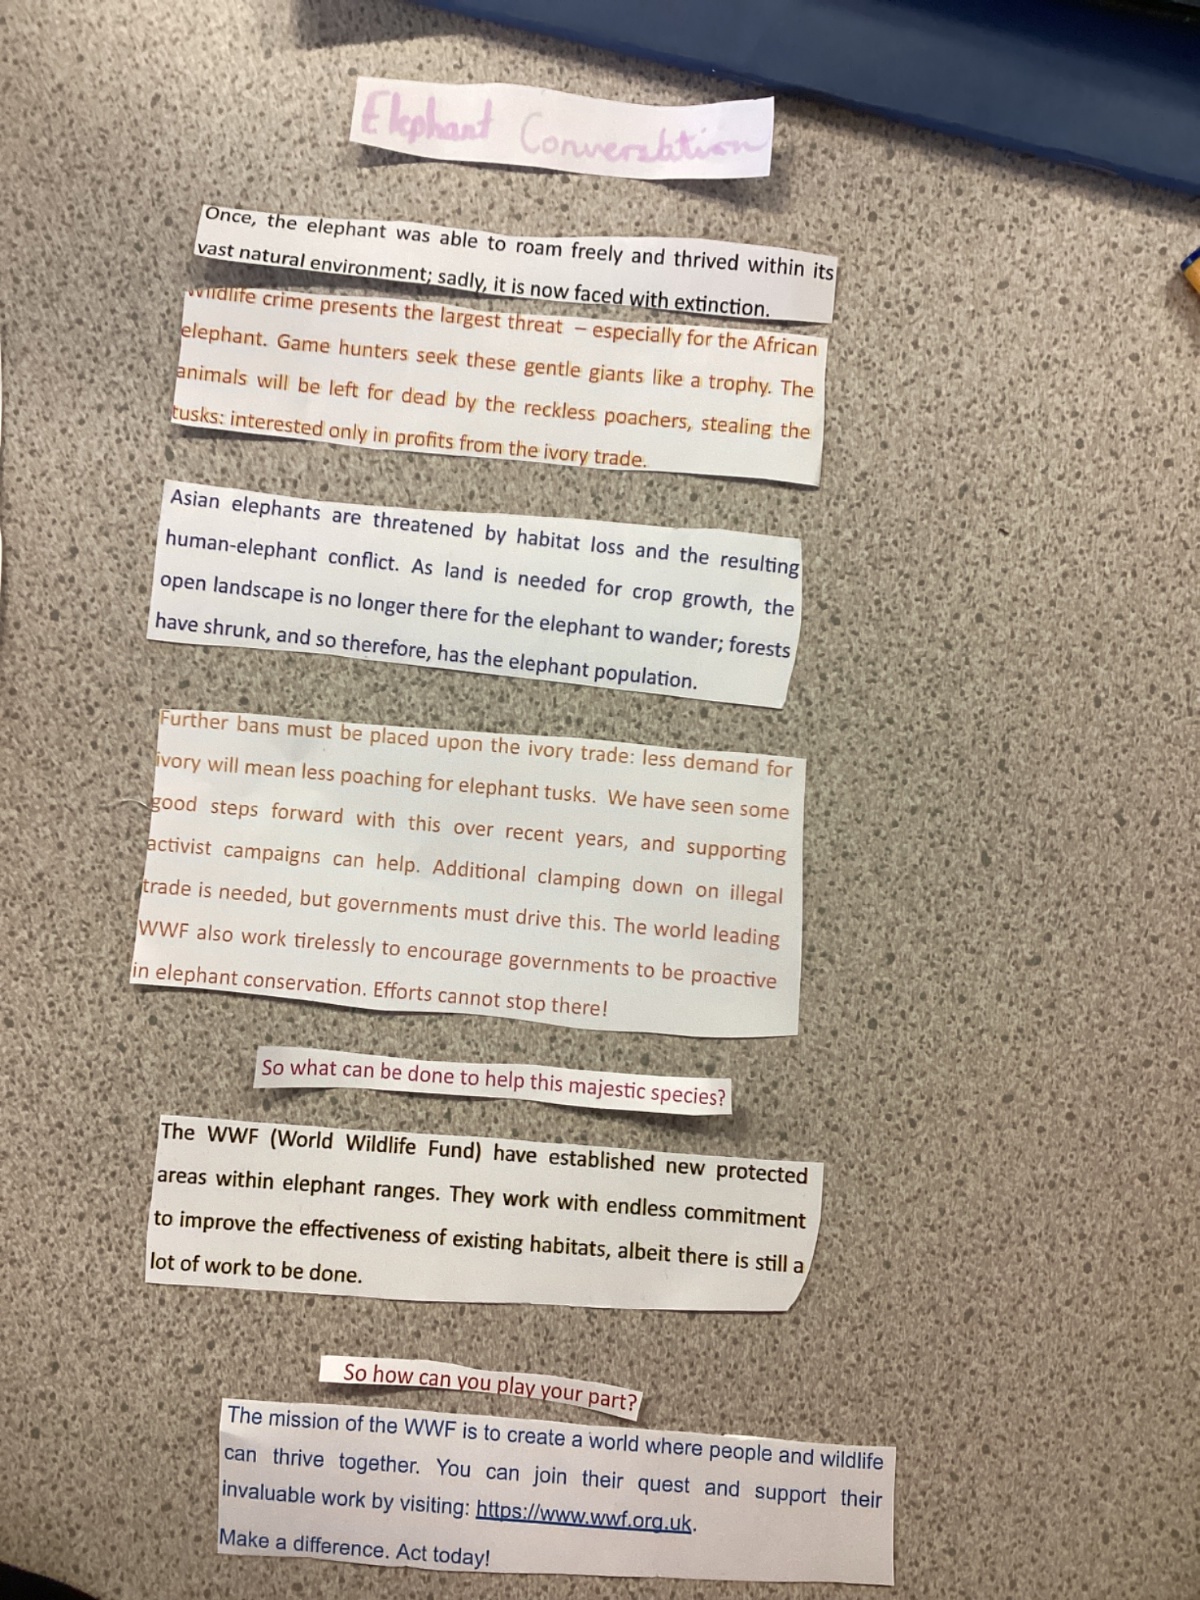 Elephant Conversation
Once, the elephant was able to roam freely and thrived within its
vast natural environment; sadly, it is now faced with extinction.
Wildlife crime presents the largest threat – especially for the African
elephant. Game hunters seek these gentle giants like a trophy. The
animals will be left for dead by the reckless poachers, stealing the
tusks: interested only in profits from the ivory trade.
Asian elephants are threatened by habitat loss and the resulting
human-elephant conflict. As land is needed for crop growth, the
open landscape is no longer there for the elephant to wander; forests
have shrunk, and so therefore, has the elephant population.
Further bans must be placed upon the ivory trade: less demand for
ivory will mean less poaching for elephant tusks. We have seen some
good steps forward with this over recent years, and supporting
activist campaigns can help. Additional clamping down on illegal
trade is needed, but governments must drive this. The world leading
WWF also work tirelessly to encourage governments to be proactive
in elephant conservation. Efforts cannot stop there!
So what can be done to help this majestic species?
The WWF (World Wildlife Fund) have established new protected
areas within elephant ranges. They work with endless commitment
to improve the effectiveness of existing habitats, albeit there is still a
lot of work to be done.
So how can you play your part?
The mission of the WWF is to create a world where people and wildlife
can thrive together. You can join their quest and support their
invaluable work by visiting: https://www.wwf.org.uk.
Make a difference. Act today!